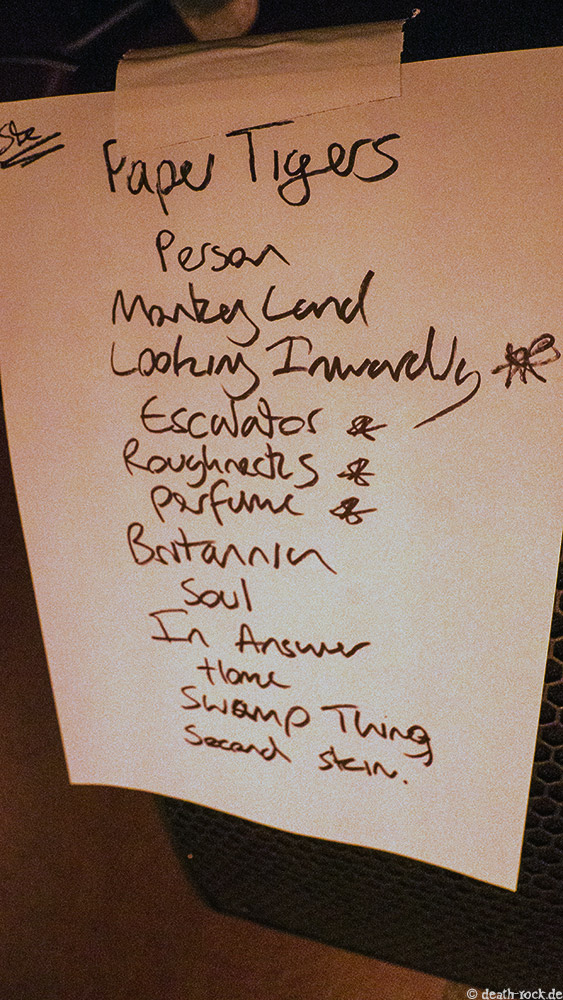 Ste
Paper Tigers
Person
Monkey Land
Looking Inwardly *
Escalator *
Roughnecks *
Perfume *
Britannia
Soul
In Answer
Home
Swamp Thing
Second skin.
© death-rock.de